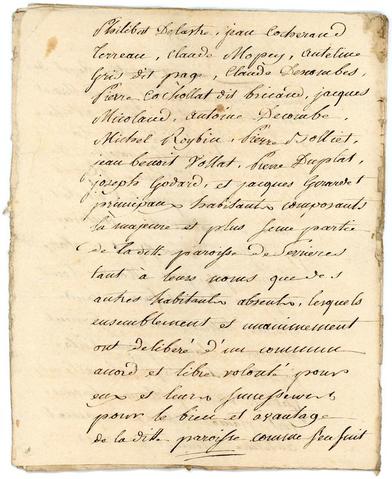 Philibert Delastre, jean Cocherand
Terreau, Claude Mopey, antelme
Gris dit page, Claude Decombes,
Pierre Cachollat dit bricand, jacques
Micolaud, antoine Decombe,
Michel Roybin, Pierre Jolliet,
jean benoit Vollat, Pierre Duplat,
joseph Godard, et jacques Girardet
principaux habitants composants
la majeure et plus seine partie
de la ditte paroisse de Serrieres
tant à leurs noms que des
autres habitants absents, lesquels
ensemblement et unanimement
ont deliberé d'un commun
accord et libre volonté pour
eux et leurs successeurs
pour le bien et avantage
de la ditte paroisse comme sen suit